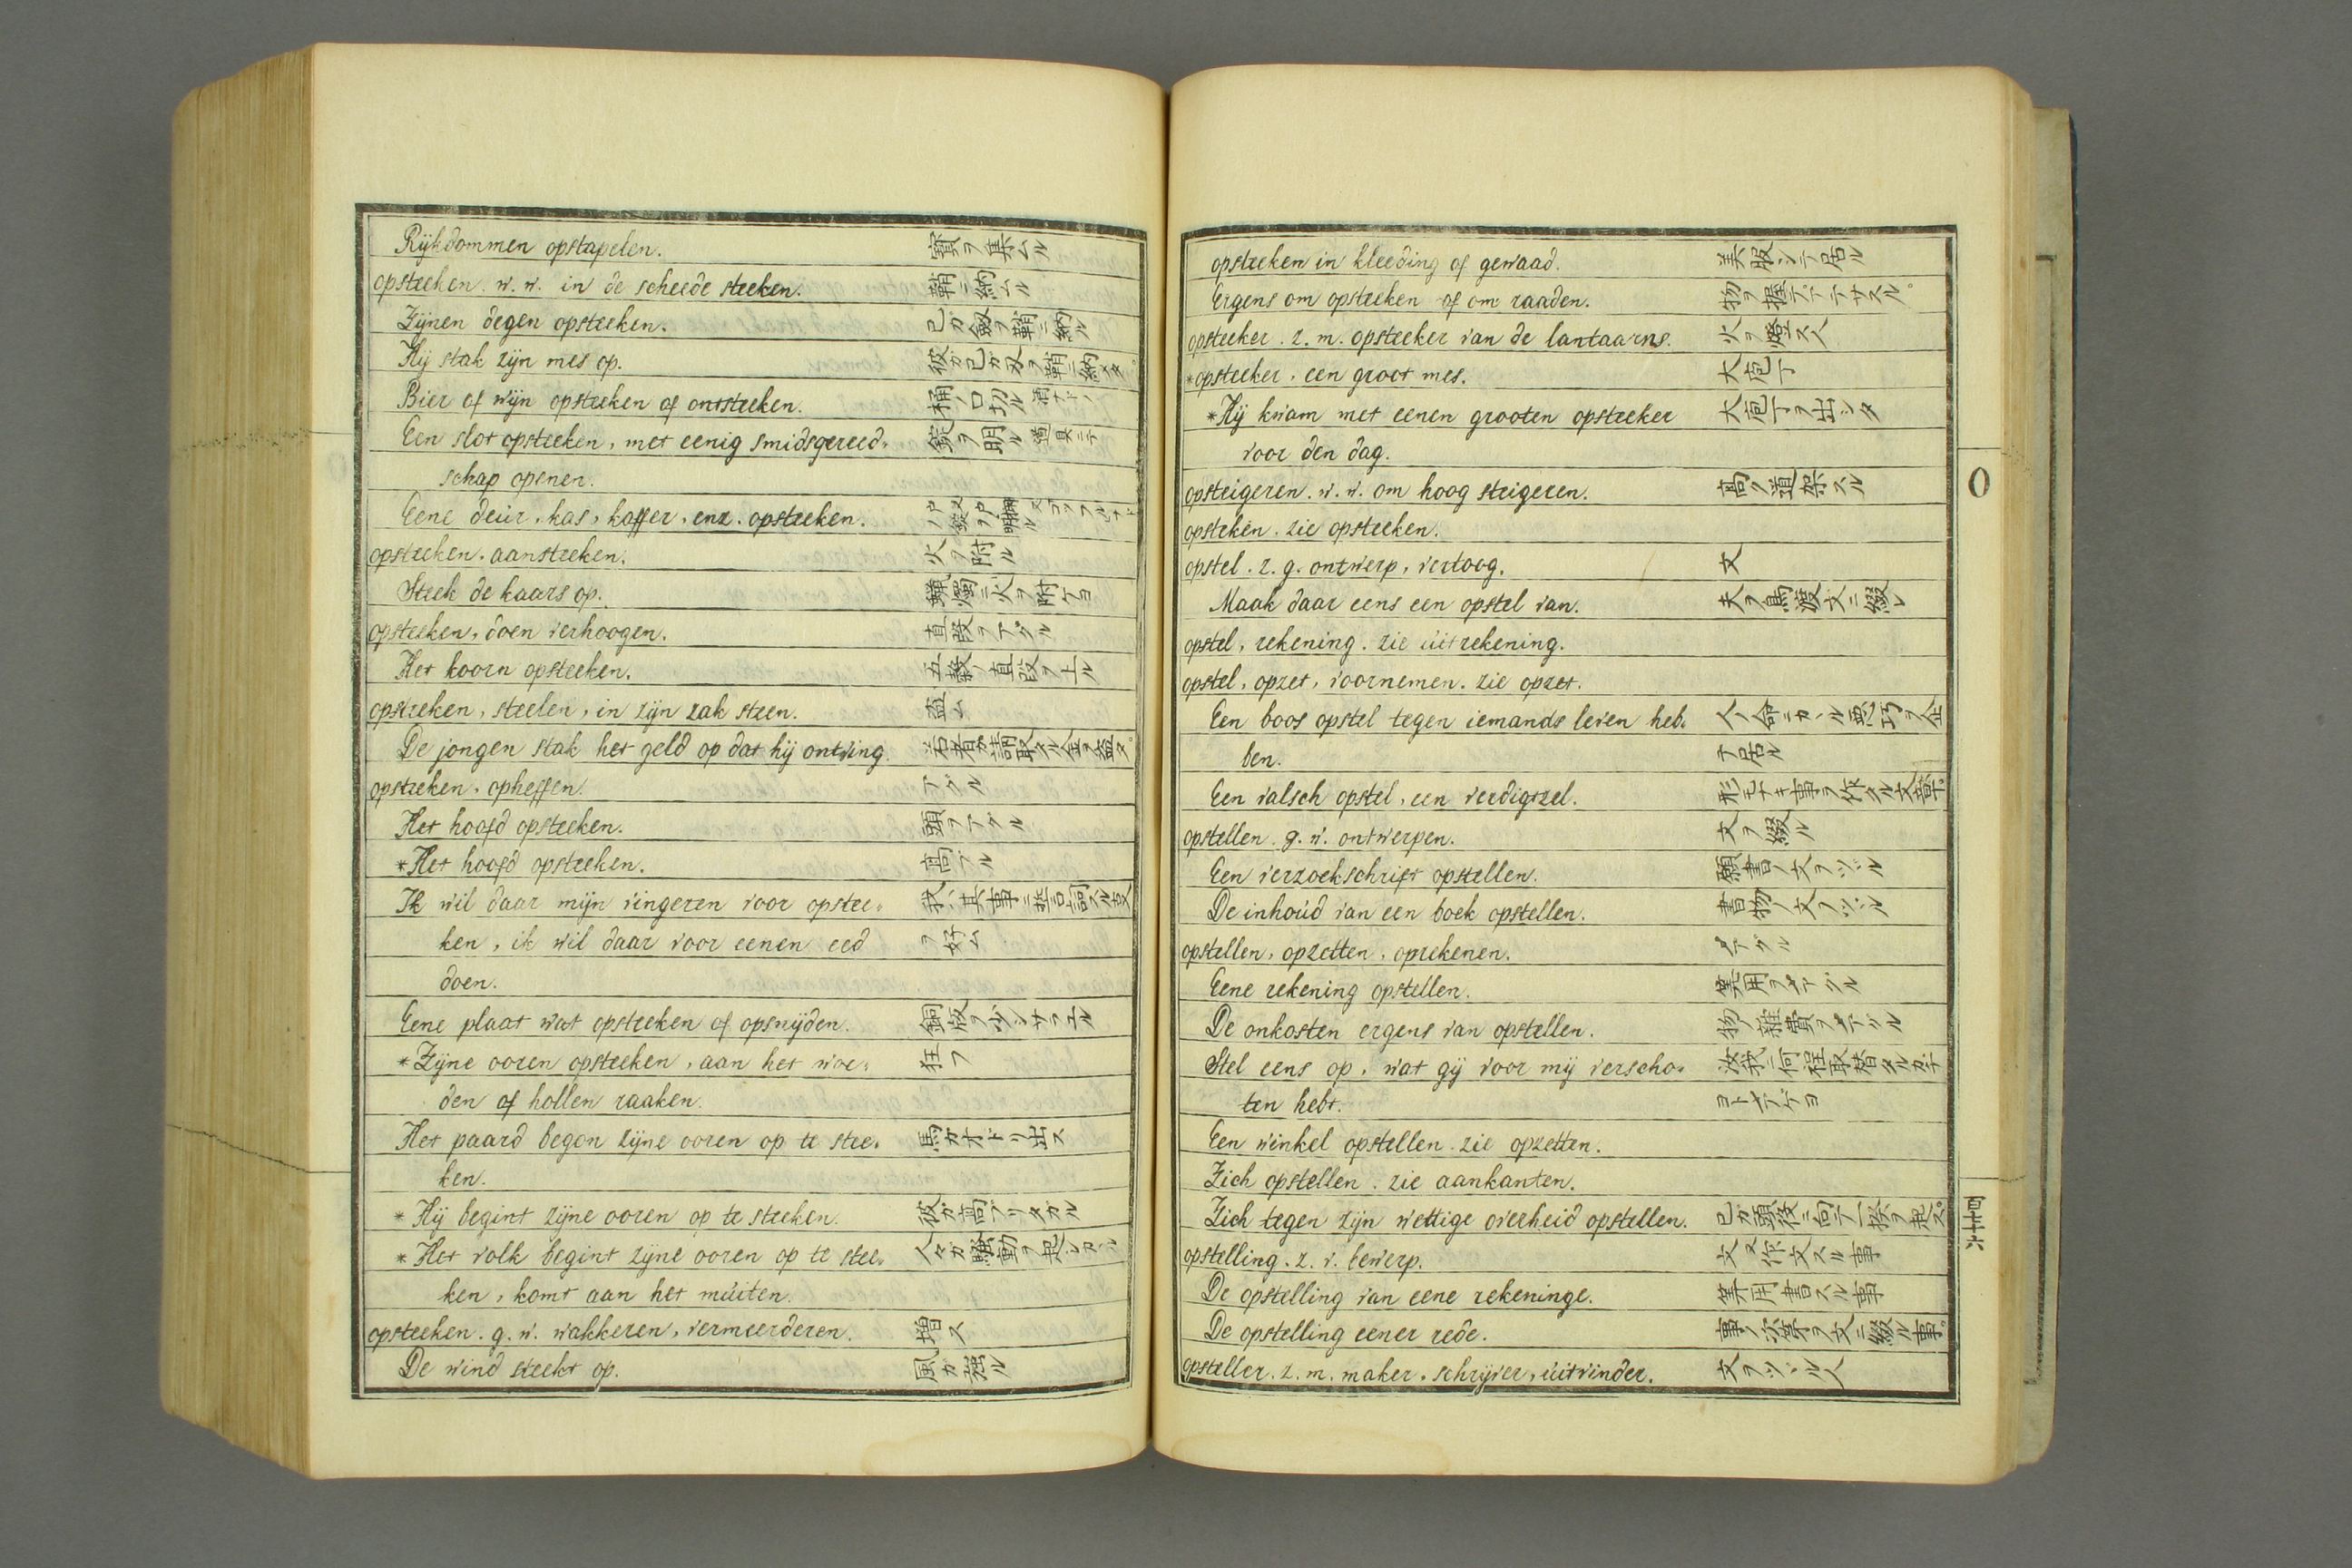 Rijkdommen opstapelen. 寳ヲ集ムル
opsteeken. w. w. in de scheede steeken. 鞘ニ納ムル
Zijnen degen opsteeken. 己ガ劔ヲ鞘ニ納ル
Hij stak zijn mes op. 彼ガ己ガ刄ヲ鞘ニ納タ。
Bier of wijn opsteeken of ontsteeken. 桶ノ口切ル
Een slot opsteeken, met eenig smidsgereed= 錠ヲ明ル 道具ニテ
schap openen.
Eene deur, kas, koffer, enz. opsteeken.
opsteeken. aansteeken. 火ヲ附ル
Steek de kaars op. 蝋燭ニ火ヲ附ケヨ
opsteeken, doen verhoogen. 直段ヲアグル
Het koorn opsteeken. 五穀ノ直段ヲ上ル
opsteeken, steelen, in zijn zak steen. 盗ム
De jongen stak het geld op dat hij ontving. 若者ガ請取タル金ヲ盗タ。
opsteeken, opheffen. アグル
Het hoofd opsteeken. 頭ヲアグル
*Het hoofd opsteeken. 高ブル
Ik wil daar mijn vingeren voor opstee= 我ハ其事ニ誓詞スル事
ken, ik wil daar voor eenen eed ヲ好ム
doen.
Eene plaat wat opsteeken of opsnijden. 銅版ヲ少シサラエル
*Zijne ooren opsteeken, aan het woe= 狂フ
den of hollen raaken.
Het paard begon zijne ooren op te stee= 馬ガオドリ出ス
ken.
*Hij begint zijne ooren op te steeken. 彼ガ高ブリタガル
*Het volk begint zijne ooren op te stee= 人々ガ騒動ヲ起シカヽル
ken, komt aan het muiten.
opsteeken. g. w. wakkeren, vermeerderen. 増ス
De wind steekt op. 風ガ強ル
opsteeken in kleeding of gewaad. 美服シテ居ル
Ergens om opsteeken of om raaden.
opsteeker. z. m. opsteeker van de lantaarns. 火ヲ燈ス人
*opsteeker, een groot mes. 大庖丁
*Hij kwam met eenen grooten opsteeker 大庖丁ヲ出シタ
voor den dag.
opsteigeren. w. w. om hoog steigeren. 高ク道架スル
opsteken. zie opsteeken.
opstel. z. g. ontwerp, vertoog. 文
Maak daar eens een opstel van. 夫ヲ鳥渡文ニ綴レ
opstel, rekening. zie uitrekening.
opstel, opzet, voornemen. zie opzet.
Een boos opstel tegen iemands leven heb= 人ノ命ニカヽル悪巧ヲ企
ben. テ居ル
Een valsch opstel, een verdigtzel. 形モナキ事ヲ作タル文章。
opstellen. g. w. ontwerpen. 文ヲ綴ル
Een verzoekschrift opstellen. 願書ノ文ヲツヾル
De inhoud van een boek opstellen. 書物ノ文ヲツヾル
opstellen, opzetten, oprekenen. カキアグル
Eene rekening opstellen. 算用ヲカキアグル
De onkosten ergens van opstellen. 物ノ雜費ヲカキアグル
Stel eens op, wat gij voor mij verscho=
ten hebt.
Een winkel opstellen. zie opzetten.
Zich opstellen. zie aankanten.
Zich tegen zijn wettige overheid opstellen. 己ガ頭役ニ向テ一揆ヲ起ス。
opstelling. z. v. bewerp. 文又作文スル事
De opstelling van eene rekeninge. 算用書スル事
De opstelling eener rede. 事ノ次第ヲ文ニ綴ル事。
opsteller. z. m. maker, schrijver, uitvinder. 文ヲツヾル人
O